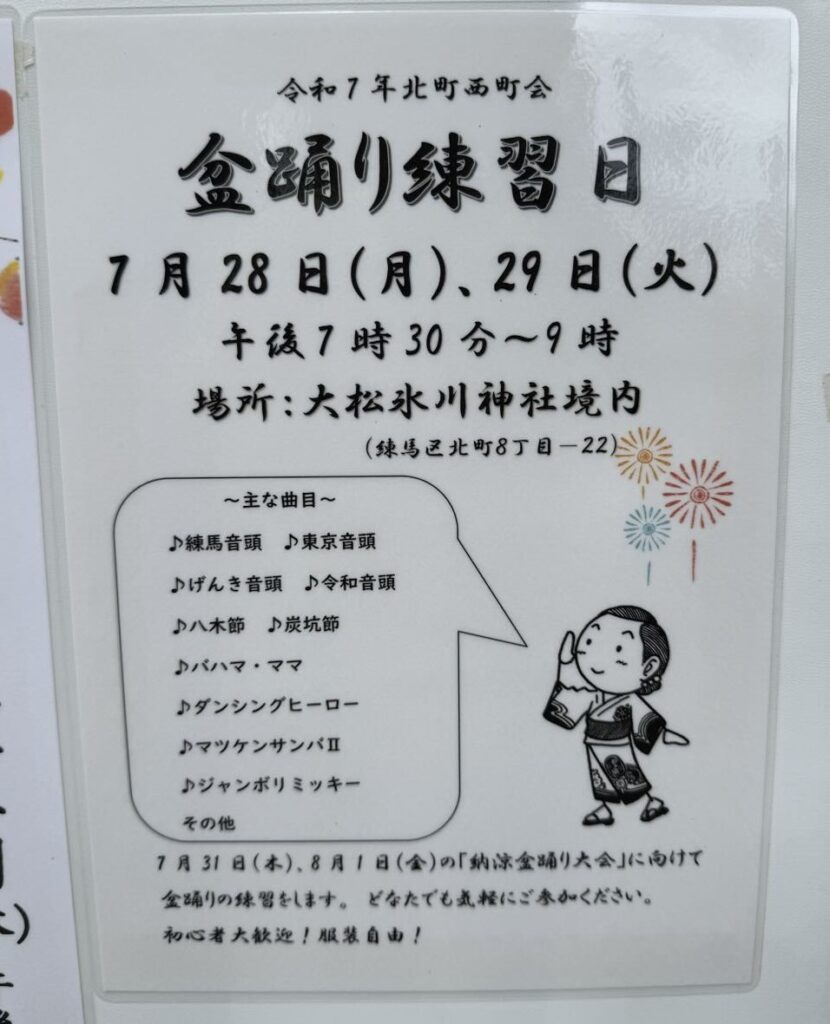 令和7年北町西町会
盆踊り練習日
7月28日(月)、29日(火)
午後7時30分〜9時
場所:大松氷川神社境内
(練馬区北町8丁目−22)
〜主な曲目〜
♪練馬音頭 ♪東京音頭
♪げんき音頭 ♪令和音頭
♪八木節 ♪炭坑節
♪バハマ・ママ
♪ダンシングヒーロー
♪マツケンサンバⅡ
♪ジャンボリミッキー
その他
7月31日(木)、8月1日(金)の「納涼盆踊り大会」に向けて
盆踊りの練習をします。 どなたでも気軽にご参加ください。
初心者大歓迎!服装自由!